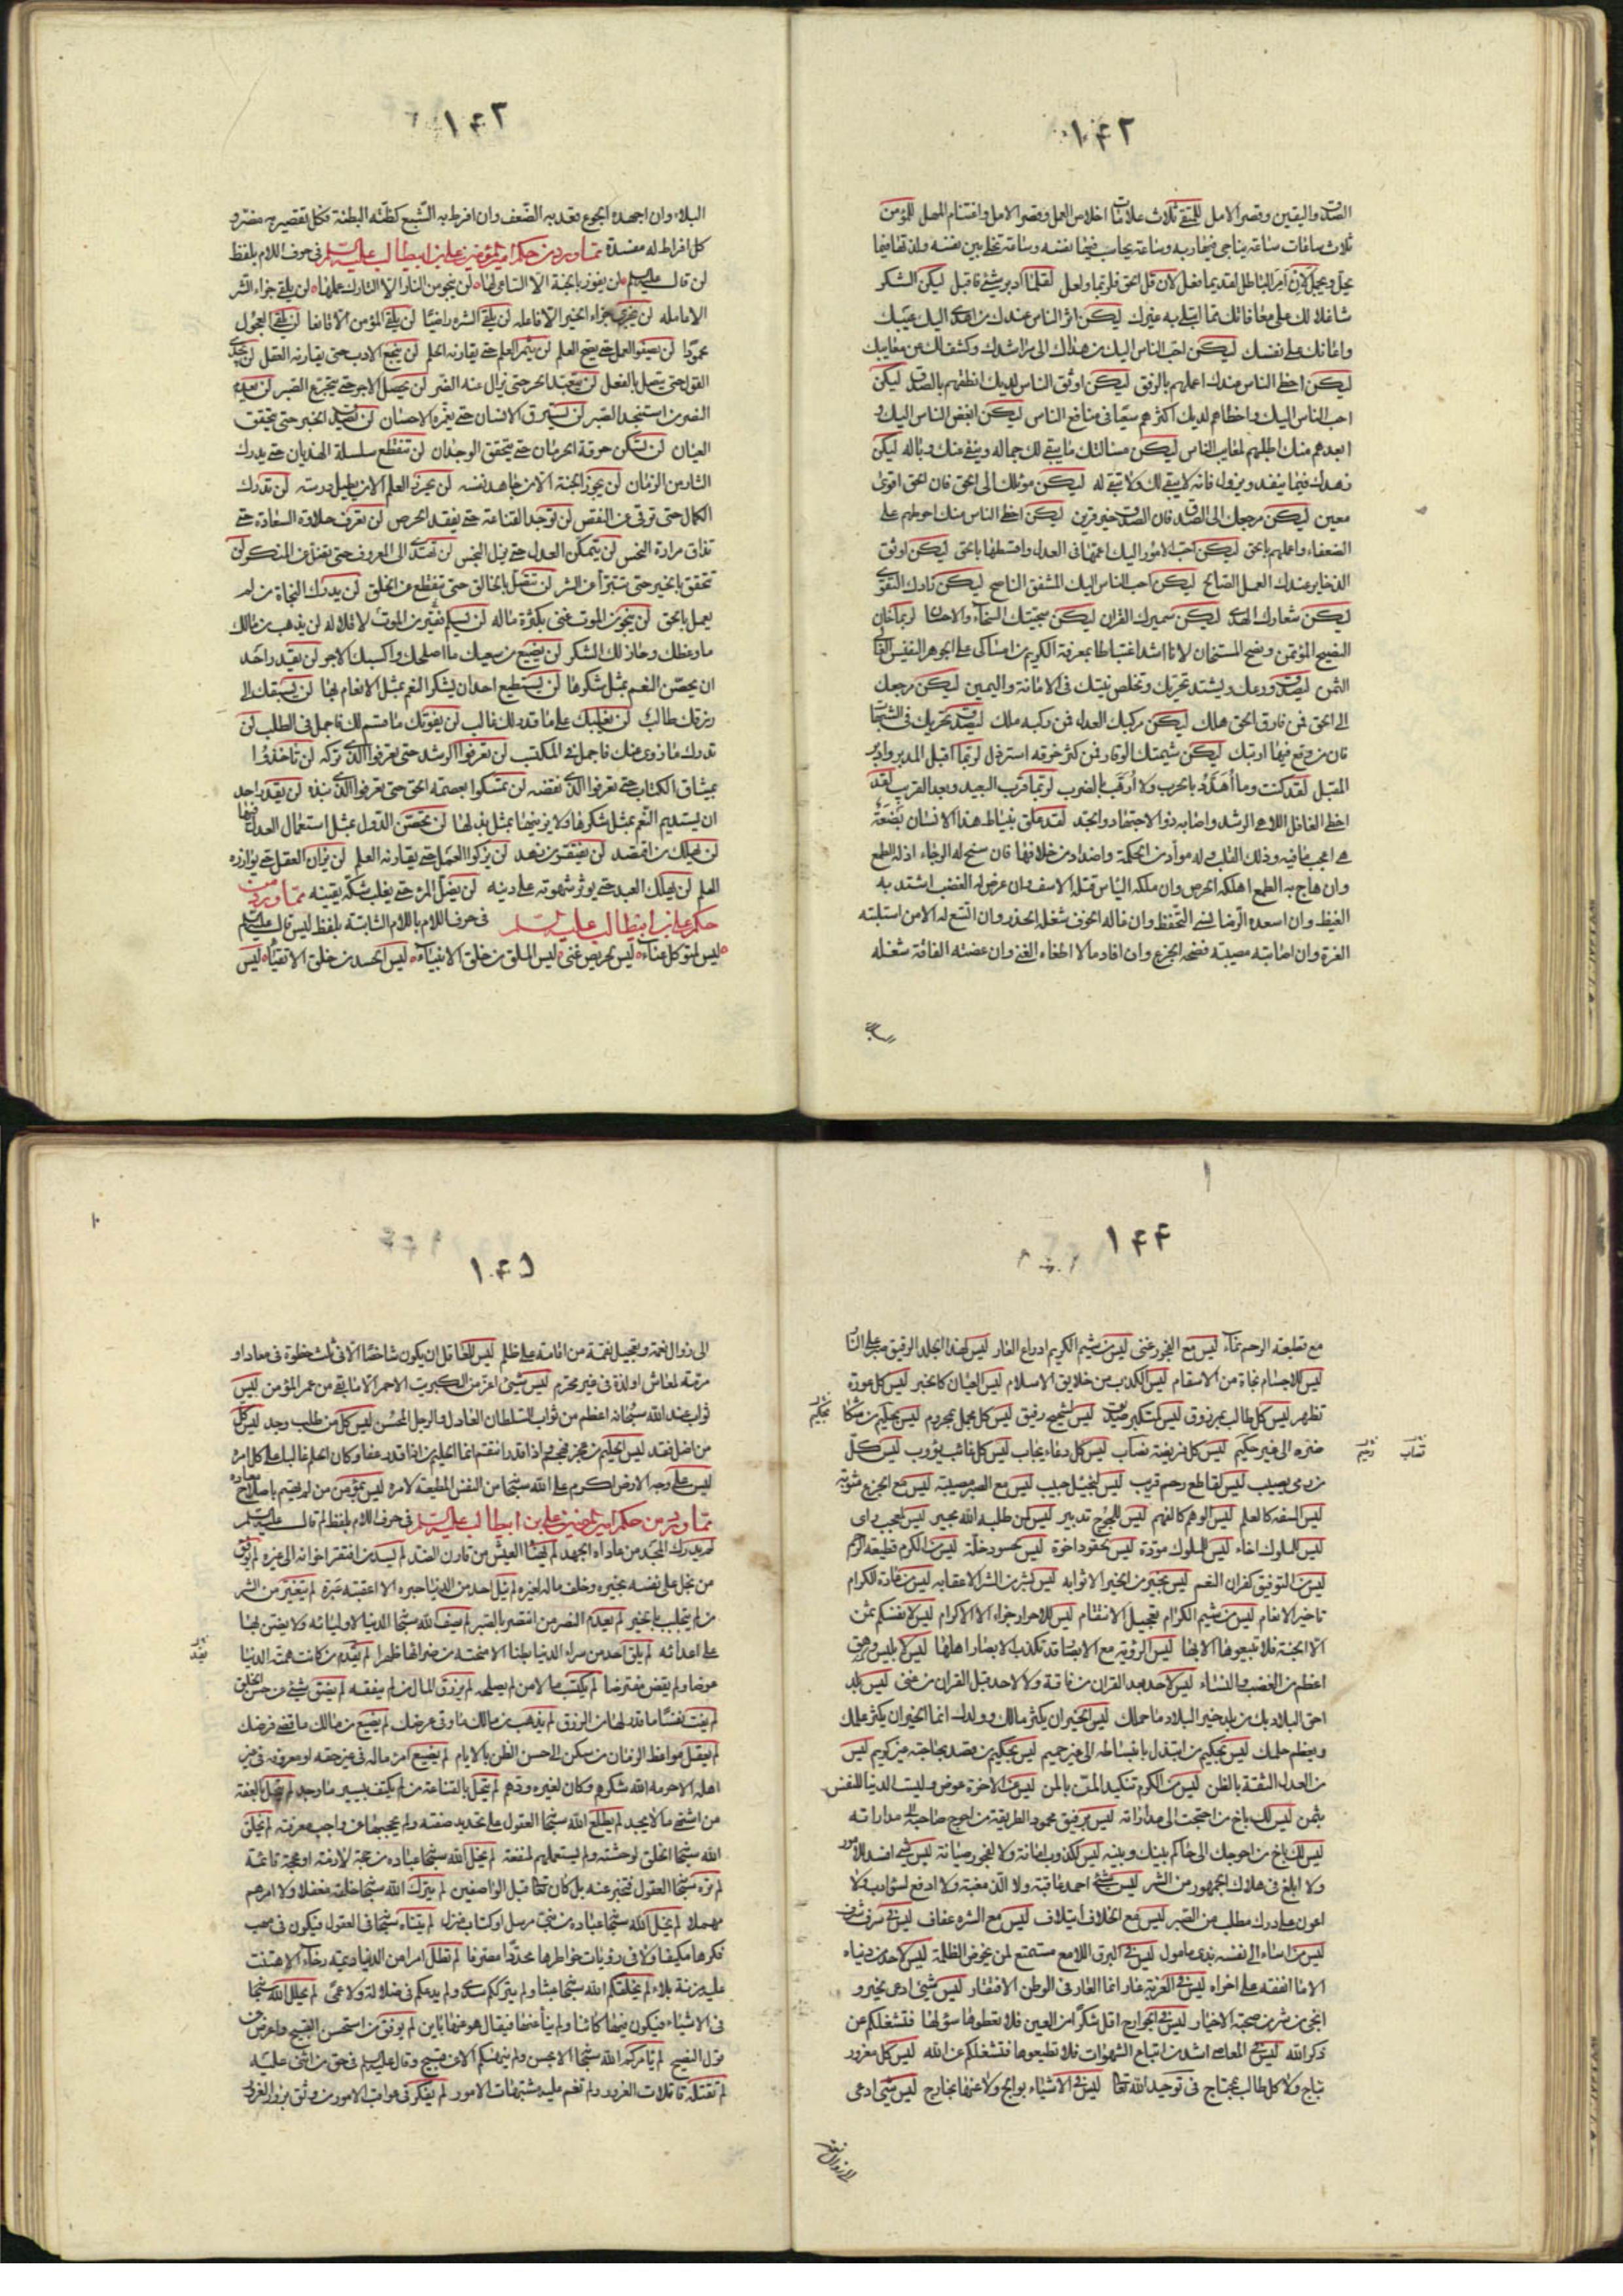 ١٤٢
الصدق واليقين وقصر الامل للمتقى ثلاث علامات اخلاص العمل وقصر الامل واغتنام المهل للمؤمن
ثلاث ساعات ساعة يناجى فيها ربه وساعة يحاسب فيها نفسه وساعة تخلى بين نفسه ولذتها فيما
يحل ويجمل لان امر الباطل لقديما فعل لان قل الحق فلربما ولعل لقلما ادبر شىء فاقبل ليكن الشكر
شاغلا لك على معافاتك مما ابتلى به غيرك ليكن اثر الناس عندك من اهدى اليك عيبك
واعانك على نفسك ليكن احب الناس اليك من هداك الى مراشدك وكشف لك عن معايبك
ليكن احظى الناس عندك اعملهم بالرفق ليكن اوثق الناس لديك انطقهم بالصدق ليكن
احب الناس اليك واحظاهم لديك اكثرهم سعيا فى منافع الناس ليكن ابغض الناس اليك و
ابعدهم منك اطلبهم لمعايب الناس ليكن مسالتك ما يبقى لك جماله وينفى عنك وباله ليكن
زهدك فيما ينفد ويزول فانه لا يبقى لك ولا تبقى له ليكن موئلك الى الحق فان الحق اقوى
معين ليكن مرجعك الى الصدق فان الصدق خير قرين ليكن احظى الناس منك احوطهم على
الضعفاء واعملهم بالحق ليكن احب الامور اليك اعمها فى العدل واقسطها بالحق ليكن اوثق
الذخاير عندك العمل الصالح ليكن احب الناس اليك المشفق الناصح ليكن زادك التقوى
ليكن شعارك الهدى ليكن سميرك القران ليكن سجيتك السخاء والاحسان لربما خان
النصيح المؤتمن ونصح المستخان لانا اشد اغتباطا بمعرفة الكريم من امساكى على الجوهر النفيس الغالى
الثمن ليصدق ورعك ويشتد تحريك وتخلص نيتك فى الامانة واليمين ليكن مرجعك
الى الحق فمن فارق الحق هلك ليكن مركبك العدل فمن ركبه ملك ليصدق تحريك فى الشبهات
فان من وقع فيها ارتبك ليكن شيمتك الوقار فمن كثر خرقه استرذل لربما اقبل المدبر وادبر
المقبل لقد كنت وما اهدد بالحرب ولا ارهب بالضرب لربما قرب البعيد وبعد القريب لقد
اخطى الغافل اللاهى الرشد واصابه ذو الاجتهاد والجد لقد علق بنياط هذا الانسان بضعة
هى اعجب ما فيه وذلك القلب وله مواد من الحكمة واضداد من خلافها فان سنح له الرجاء اذله الطمع
وان هاج به الطمع اهلكه الحرص وان ملكه الياس قتله الاسف وان عرض له الغضب اشتد به
الغيظ وان اسعده الرضا نسى التحفظ وان غاله الخوف شغله الحذر وان اتسع له الامن استلبته
الغرة وان اصابته مصيبة فضحه الجزع وان افاد مالا اطغاه الغنى وان عضته الفاقة شغله
البلاء
١٤٣
البلاء وان اجهده الجوع قعد به الضعف وان افرط به الشبع كظته البطنة فكل تقصير به مضر و
كل افراط له مفسدة مما ورد من حكم امير المؤمنين على بن ابيطالب عليه السلم فى حرف اللام بلفظ
لن قال عليه السلم لن يفوز بالجنة الا الساعى لها لن ينجو من النار الا التارك عملها لن يلقى جزاء الشر
الا عامله لن يجزى جزاء الخير الا فاعله لن يلقى الشره راضيا لن يلقى المؤمن الا قانعا لن يلقى العجول
محمودا لن يصفو العمل حتى يصح العلم لن يثمر العلم حتى يقارنه الحلم لن ينجع الادب حتى يقارنه العقل لن يجدى
القول حتى يتصل بالفعل لن يتعبد الحر حتى يزال عنه الضر لن يحصل الاجر حتى يتجرع الصبر لن يعدم
النصر من استنجد الصبر لن يسترق الانسان حتى يغمره الاحسان لن يصدق الخبر حتى يتحقق
العيان لن تسكن حرقة الحرمان حتى يتحقق الوجدان لن تنقطع سلسلة الهذيان حتى يدرك
الثار من الزمان لن يحوز الجنة الا من جاهد نفسه لن يحرز العلم الا من يطيل درسه لن تدرك
الكمال حتى ترقى عن النقص لن توجد القناعة حتى يفقد الحرص لن تعرف حلاوة السعادة حتى
تذاق مرارة النحس لن يتمكن العدل حتى يزل البخس لن تهتدى الى المعروف حتى تضل عن المنكر لن
تتحقق بالخير حتى تتبرأ عن الشر لن تتصل بالخالق حتى تنقطع عن الخلق لن يدرك النجاة من لم
يعمل بالحق لن ينجو من الموت غنى بكثرة ماله لن يسلم فقير من الموت لاقلاله لن يذهب من مالك
ما وعظك وحاز لك الشكر لن يضيع من سعيك ما اصلحك واكسبك الاجر لن يقدر احد
ان يحصن النعم بمثل شكرها لن يستطيع احد ان يشكر النعم بمثل الانعام بها لن يسبقك الى
رزقك طالب لن يغلبك على ما قدر لك غالب لن يفوتك ما قسم لك فاجمل فى الطلب لن
تدرك ما زوى عنك فاجمل فى المكتسب لن تعرفوا الرشد حتى تعرفوا الذى تركه لن تاخذوا
بميثاق الكتاب حتى تعرفوا الذى نقضه لن تمسكوا بعصمة الحق حتى تعرفوا الذى نبذه لن يقدر احد
ان يستديم النعم بمثل شكرها ولا يزينها بمثل بذلها لن تحصن الدول بمثل استعمال العدل فيها
لن يهلك من اقتصد لن يفتقر من زهد لن يزكو العمل حتى يقارنه العلم لن يزان العقل حتى يوازره
الحلم لن يهلك العبد حتى يوثر شهوته على دينه لن يضل المرء حتى يغلب شكه يقينه مما ورد من
حكم على بن ابيطالب عليه السلم فى حرف اللام باللام الثابتة بلفظ ليس قال عليه السلم
ليس لمتوكل عناء ليس لحريص غنى ليس الملق من خلق الانبياء ليس الحسد من خلق الاتقياء ليس
١٤٤
مع قطيعة الرحم نماء ليس مع الفجور غنى ليس من شيم الكريم ادراع العار ليس لهذا الجلد الرقيق صبر على النار
ليس للاجسام نجاة من الاسقام ليس الكذب من خلايق الاسلام ليس العيان كالخبر ليس كل عورة
تظهر ليس كل طالب بمرزوق ليس لمتكبر صديق ليس لشحيح رفيق ليس كل مجمل بمحروم ليس بحكيم من شكا
ضره الى غير حكيم ليس كل فريضة تصاب ليس كل دعاء يجاب ليس كل غائب يؤوب ليس كل
من رمى يصيب ليس لقاطع رحم قريب ليس لبخيل حبيب ليس مع الصبر مصيبة ليس مع الجزع مثوبة
ليس السفه كالحلم ليس الوهم كالفهم ليس للجوج تدبير ليس لمن طلبه الله مجير ليس لمعجب راى
ليس لملول اخاء ليس للملوك مودة ليس لحقود اخوة ليس لحسود خلة ليس من الكرم قطيعة الرحم
ليس من التوفيق كفران النعم ليس بخير من الخير الا ثوابه ليس بشر من الشر الا عقابه ليس من عادة الكرام
تاخير الانعام ليس من شيم الكرام تعجيل الانتقام ليس للاحرار جزاء الا الاكرام ليس لانفسكم ثمن
الا الجنة فلا تبيعوها الا بها ليس الرؤية مع الابصار قد تكذب الابصار اهلها ليس لابليس وهق
اعظم من الغضب والنساء ليس لاحد بعد القران من فاقة ولا لاحد قبل القران من غنى ليس بلد
احق البلاد بك من بلد خير البلاد ما حملك ليس الخير ان يكثر مالك وولدك انما الخير ان يكثر علمك
ويعظم حلمك ليس بحكيم من ابتذل بانبساطه الى غير حميم ليس بحكيم من قصد بحاجته غير كريم ليس
من العدل الثقة بالظن ليس من الكرم تنكيد المنن بالمن ليس عن الاخرة عوض وليست الدنيا للنفس
بثمن ليس لك باخ من احتجت الى مداراته ليس برفيق محمود الطريقة من احوج صاحبه الى مداراته
ليس لك باخ من احوجك الى حاكم بينك وبينه ليس لكذوب امانة ولا لفجور صيانة ليس شىء افسد للامور
ولا ابلغ فى هلاك الجمهور من الشر ليس شىء احمد عاقبة ولا الذ مغبة ولا ادفع لسوء ادب ولا
اعون على درك مطلب من الصبر ليس مع الخلاف ايتلاف ليس مع الشره عفاف ليس فى سرف شرف
ليس من اساء الى نفسه بذى مامول ليس فى البرق اللامع مستمتع لمن يخوض الظلمة ليس لاحد من دنياه
الا ما انفقه على اخراه ليس فى الغربة عار انما العار فى الوطن الافتقار ليس شىء ادعى لخير و
انجى من شر من صحبة الاخيار ليس فى الجوارح اقل شكرا من العين فلا تعطوها سؤلها فتشغلكم عن
ذكر الله ليس فى المعاصى اشد من اتباع الشهوات فلا تطيعوها فتشغلكم عن الله ليس كل مغرور
بناج ولا كل طالب بمحتاج فى توحيد الله تعالى ليس فى الاشياء بوالج ولا عنها بخارج ليس شىء ادعى
الى زوال نعمة
١٤٥
الى زوال نعمة وتعجيل نقمة من اقامة على ظلم ليس للعاقل ان يكون شاخصا الا فى ثلث خطوة فى معاد او
مرمة لمعاش او لذة فى غير محرم ليس شىء اعز من الكبريت الاحمر الا ما بقى من عمر المؤمن ليس
ثواب عند الله سبحانه اعظم من ثواب السلطان العادل والرجل المحسن ليس كل من طلب وجد ليس كل
من اضل فقد ليس الحليم من عجز فهجم اذا قدر انتقم انما الحليم من اذا قدر عفا وكان الحلم غالبا على كل امره
ليس على وجه الارض اكرم على الله سبحانه من النفس المطيعة لامره ليس بمؤمن من لم يهتم باصلاح معاده
مما ورد من حكم امير المؤمنين على بن ابيطالب عليه السلم فى حرف اللام بلفظ لم قال عليه السلم
لم يدرك المجد من عاداه الجهد لم يهنا العيش من قارن الضد لم يسد من افتقر اخوانه الى غيره لم يوفق
من بخل على نفسه بخيره وخلف ماله لغيره لم ينل احد من الدنيا حبرة الا اعقبته عبرة لم يتعر من الشر
من لم يتجلبب بالخير لم يعدم النصر من انتصر بالصبر لم يصف الله سبحانه الدنيا لاوليائه ولا يضن بها
على اعدائه لم يلق احد من سراء الدنيا بطنا الا منحته من ضرائها ظهرا لم يفد من كانت همته الدنيا
عوضا ولم يقض مفترضا لم يكتسب مالا من لم يصلحه لم يرزق المال من لم ينفقه لم يضق شىء عن حسن الخلق
لم يفت نفسا ما قدر لها من الرزق لم يذهب من مالك ما وقى عرضك لم يضيع من مالك ما قضى فرضك
لم يعقل مواعظ الزمان من سكن الى حسن الظن بالايام لم يضيع امرء ماله فى غير حقه او معروفه فى غير
اهله الا حرمه الله شكرهم وكان لغيره ودهم لم يتحل بالقناعة من لم يكتف بيسير ما وجد لم يتحل بالعفة
من اشتهى ما لا يجد لم يطلع الله سبحانه العقول على تحديد صفته ولم يحجبها عن واجب معرفته لم يخلق
الله سبحانه الخلق لوحشة ولم يستعملهم لمنفعة لم يخل الله سبحانه عباده من حجة لازمة او محجة قائمة
لم تره سبحانه العقول فتخبر عنه بل كان تعالى قبل الواصفين لم يترك الله سبحانه خلقه مغفلا ولا امرهم
مهملا لم يخل الله سبحانه عباده من نبى مرسل او كتاب منزل لم يتناه سبحانه فى العقول فيكون فى مهب
فكرها مكيفا ولا فى رويات خواطرها محددا مصرفا لم تطل امرا من الدنيا ديمة رخاء الا هتنت
عليه مزنة بلاء لم يخلقكم الله سبحانه عبثا ولم يترككم سدى ولم يدعكم فى ضلالة ولا عمى لم يحلل الله سبحانه
فى الاشياء فيكون فيها كائنا ولم ينأ عنها فيقال هو عنها باين لم يوفق من استحسن القبيح واعرض عن
قول النصيح لم يامركم الله سبحانه الا بحسن ولم ينهكم الا عن قبيح وقال عليه السلم فى حق من اثنى عليه
لم تقتله قاتلات الغرور ولم تغم عليه مشتبهات الامور لم يفكر فى عواقب الامور من وثق بزور الغرور